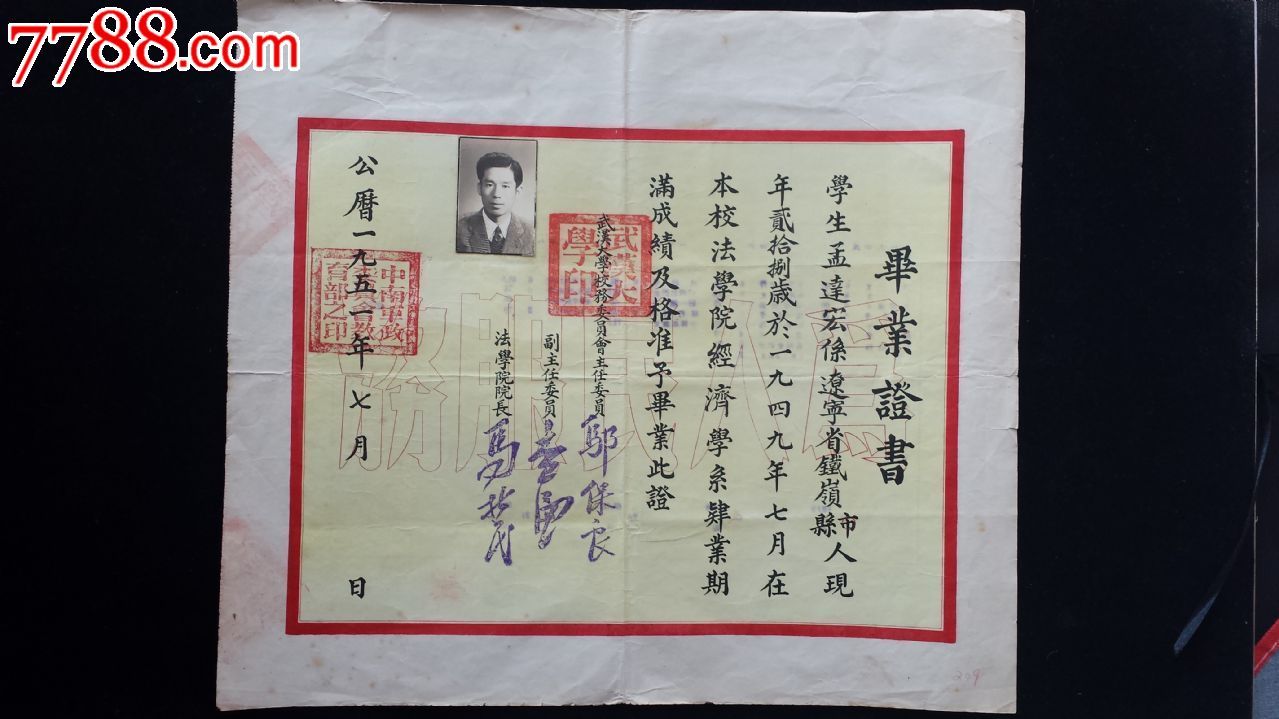 7788.com
畢業證書
學生孟達宏係遼寧省鐵嶺縣市人現
年貳拾捌歲於一九四九年七月在
本校法學院經濟學系肄業期
滿成績及格准予畢業此證
武漢大學校務委員會主任委員 鄔保良
副主任委員
法學院院長
武漢大學印
公曆一九五一年七月 日
中南軍政委員會教育部之印
為人民服務
299